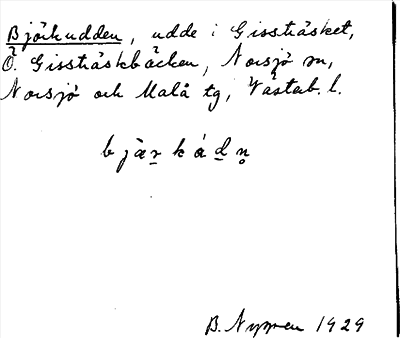 Björkudden, udde i Gissträsket,
Ö. Gissträskbäcken, Norsjö sn,
Norsjö och Malå tg, Västerb. l.
b j à r̲ k á d̲ n̥
B. Nygren 1929